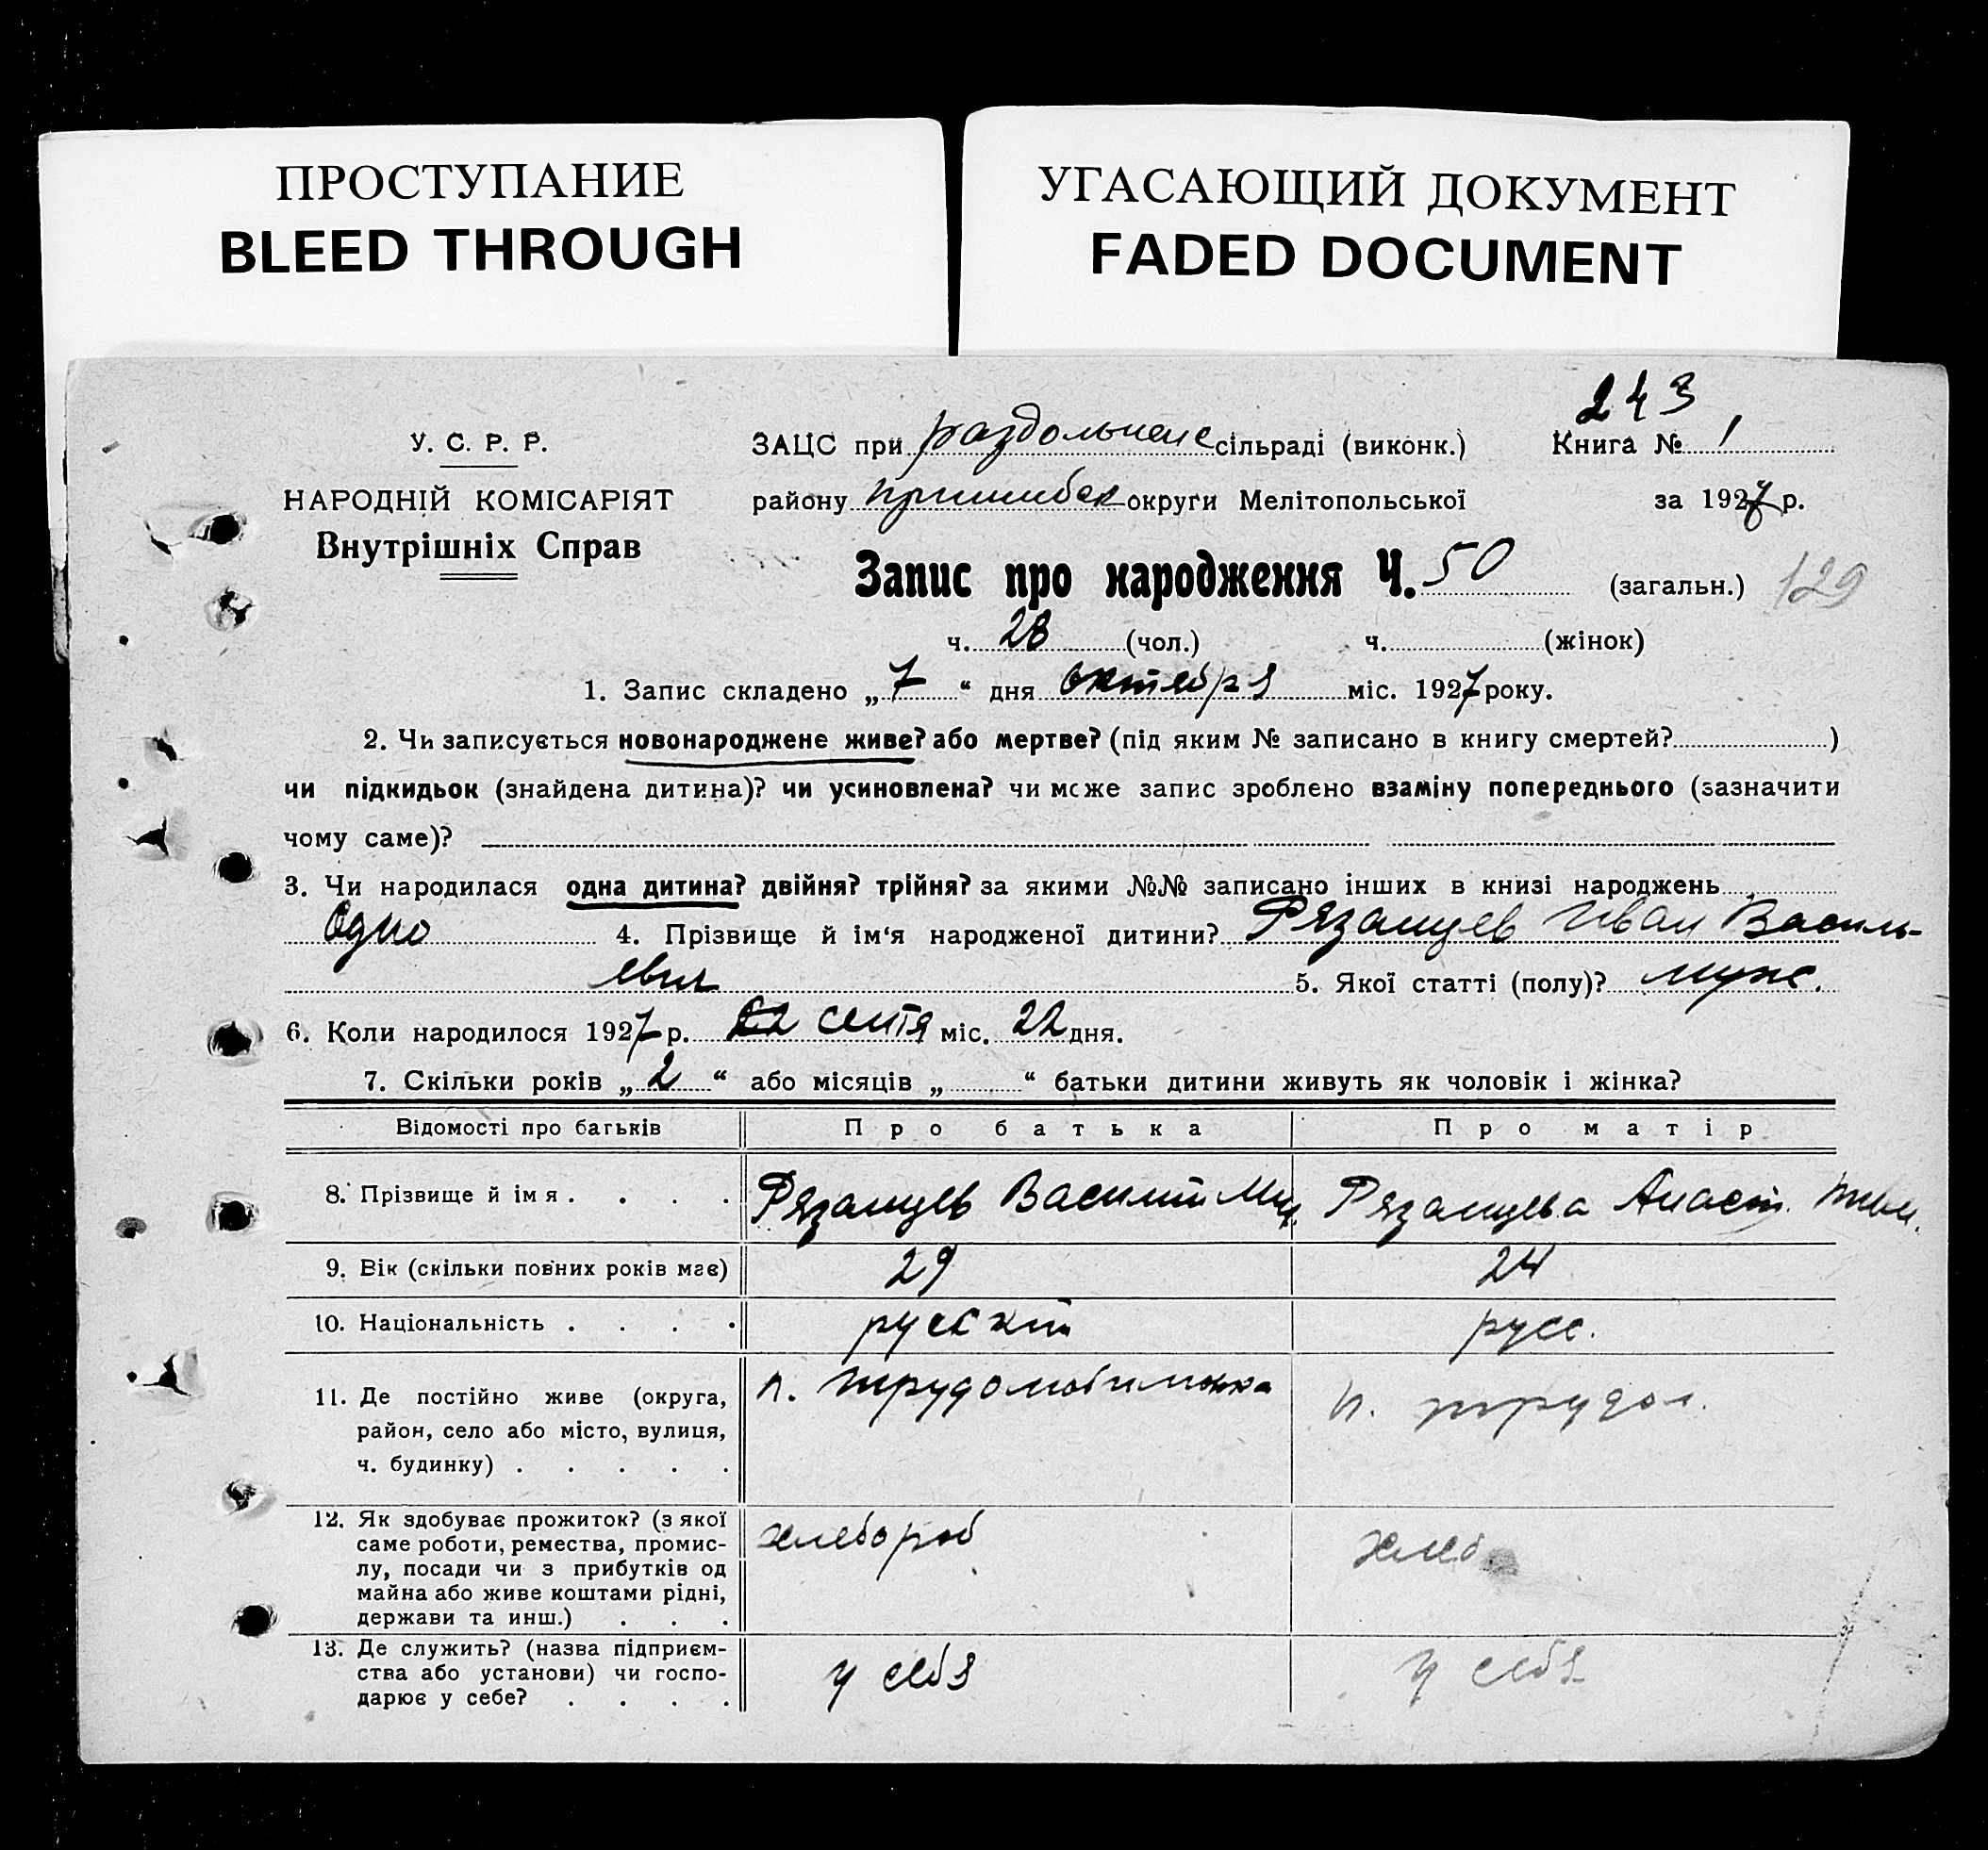 ПРОСТУПАНИЕ
BLEED THROUGH
УГАСАЮЩИЙ ДОКУМЕНТ
FADED DOCUMENT
243
У. С. Р. Р.
НАРОДНІЙ КОМІСАРІЯТ
Внутрішніх Справ
ЗАЦС при сільраді (виконк.) Книга № 1
району округи Мелітопольської за 1927 р.
Запис про народження Ч. 50 (загальн.) 129
ч. 28 (чол.) ч. (жінок)
1. Запис складено „ 7 “ дня октября міс. 1927 року.
2. Чи записується новонароджене живе? або мертве? (під яким № записано в книгу смертей? )
чи підкидьок (знайдена дитина)? чи усиновлена? чи може запис зроблено взаміну попереднього (зазначити
чому саме)?
3. Чи народилася одна дитина? двійня? трійня? за якими №№ записано інших в книзі народжень
Одно 4. Прізвище й ім‘я народженої дитини? Рязанцев Иван Василь-
евич 5. Якої статті (полу)? муж.
6. Коли народилося 1927 р. сентя міс. 22 дня.
7. Скільки років „ 2 “ або місяців „ “ батьки дитини живуть як чоловік і жінка?
Відомості про батьків Про батька Про матір
8. Прізвище й імя . . . . Рязанцев Василий Мих. Рязанцева Анаст.
9. Вік (скільки повних років має) 29 24
10. Національність . . . . русский русс.
11. Де постійно живе (округа,
район, село або місто, вулиця,
ч. будинку) . . . . .
п. Трудолюбимовка п. трудол.
12. Як здобуває прожиток? (з якої
саме роботи, ремества, промис-
лу, посади чи з прибутків од
майна або живе коштами рідні,
держави та инш.) . . .
хлебороб хлеб.
13. Де служить? (назва підприєм-
ства або установи) чи госпо-
дарює у себе? . . . .
у себя у себя